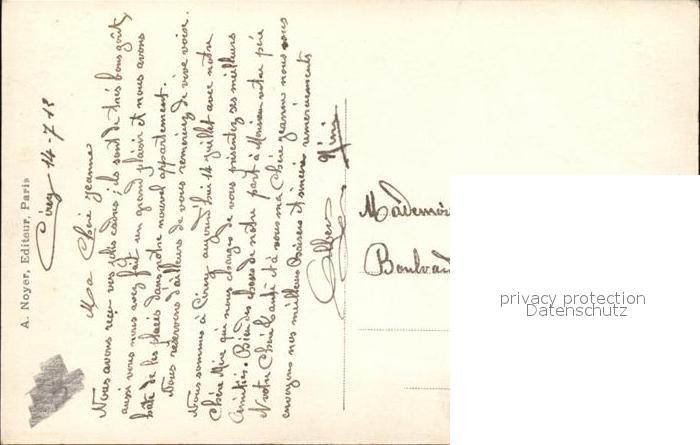 A. Noyer, Editeur, Paris
Cirey 14-7-13
Ma Chère Jeanne
Nous avons reçu vos jolis cadres; ils sont de très bons goût,
aussi vous nous avez fait un grand plaisir et nous avons
hâte de les placés dans notre nouvel appartement.
Nous réservons d'ailleurs de vous remerciez de vive voix.
Nous sommes à Cirey aujourd'hui 14 juillet avec notre
Chère Mère qui nous charges de vous présentez ses meilleurs
Amitiés. Bien des choses de notre part à Monsieur votre père
Notre Chère Tante et à vous ma Chère Jeanne nous vous
envoyons nos meilleurs Baisers et sincère remerciements
Albert
Mademoi
Boulva
privacy protection
Datenschutz